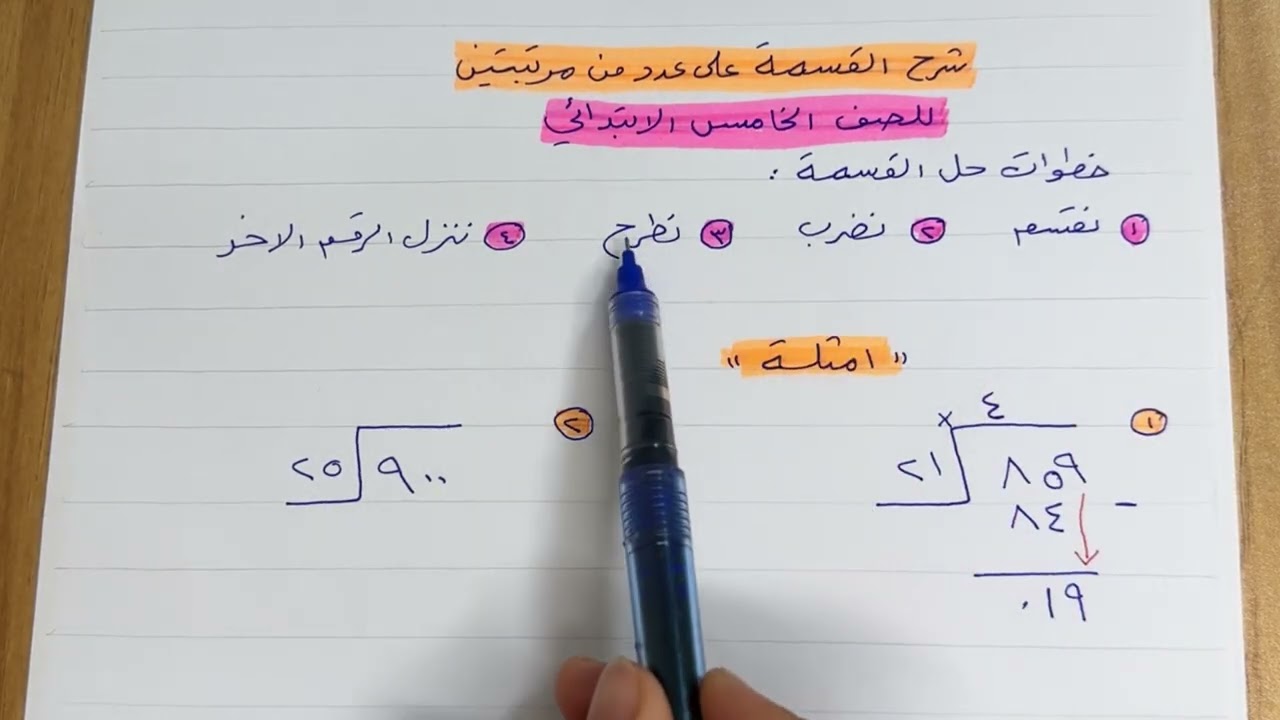 شرح القسمة على عدد من مرتبتين
للصف الخامس الابتدائي
خطوات حل القسمة :
١ نقسم ٢ نضرب ٣ نطرح ٤ ننزل الرقم الاخر
" امثلة "
١
٤
×
٢١ ٨٥٩
٨٤ -
٠١٩
٢
٢٥ ٩٠٠